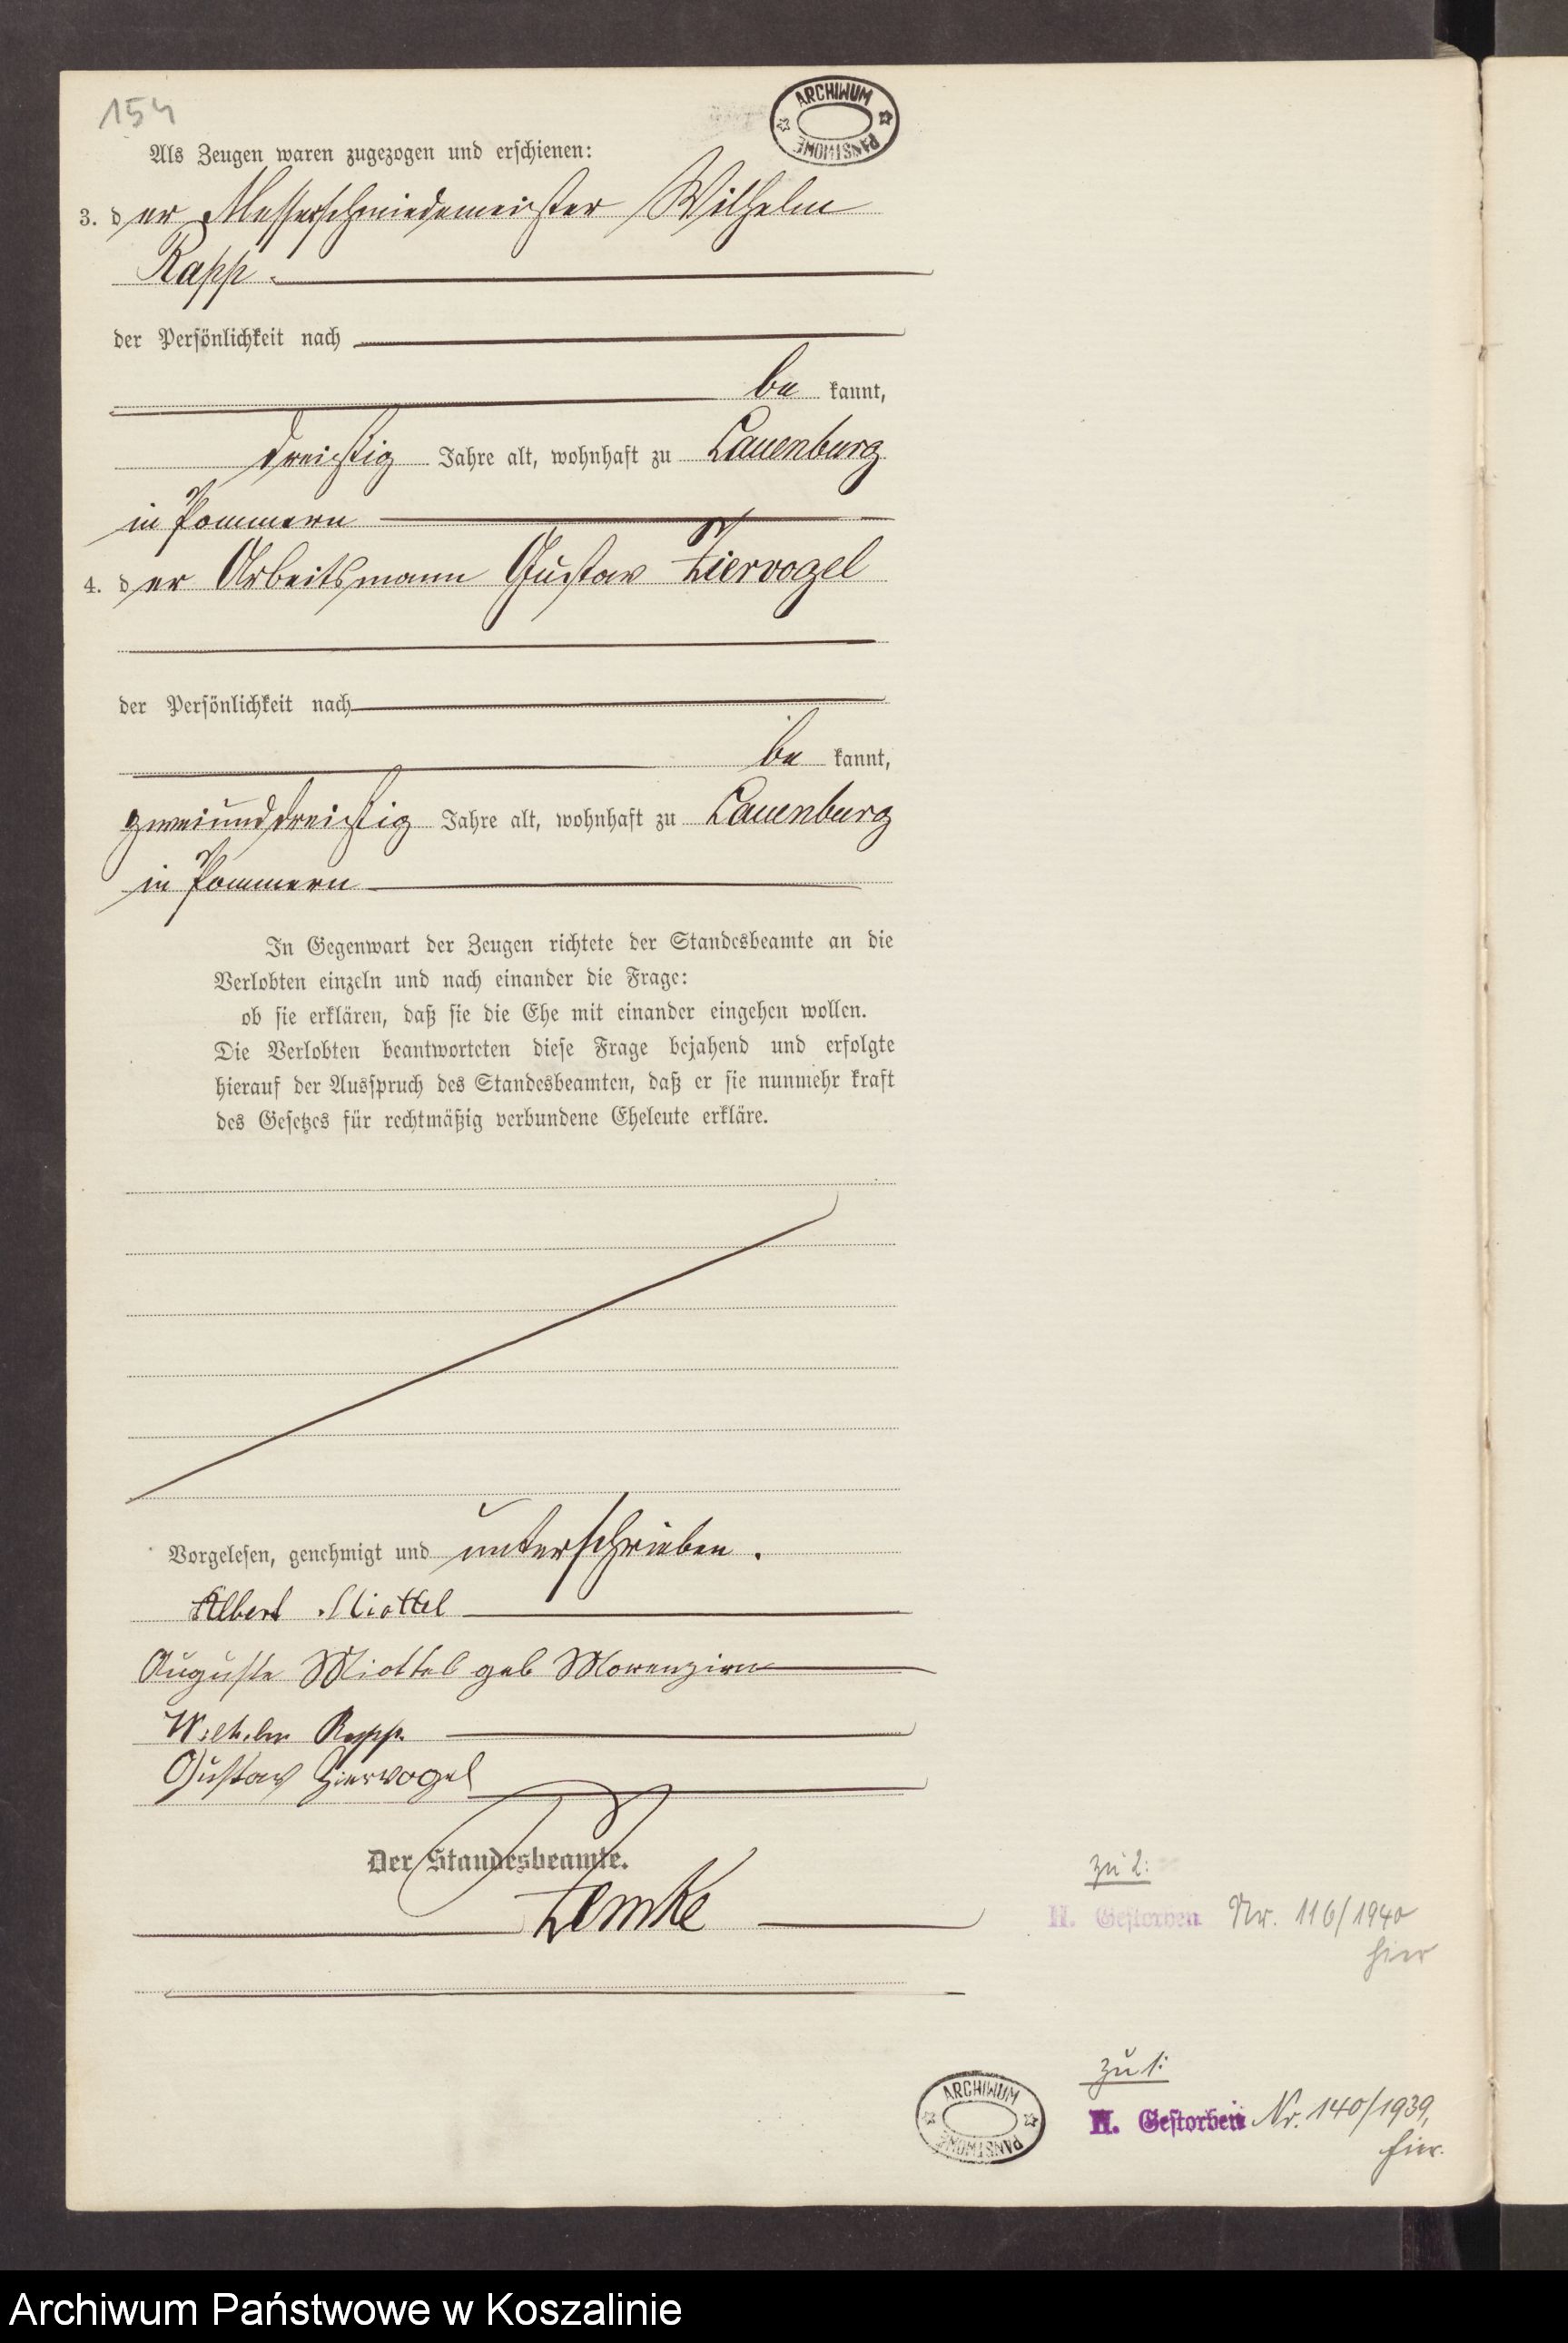 154
ARCHIWUM PAŃSTWOWE
Als Zeugen waren zugezogen und erschienen:
3. der Messerschmiedemeister Wilhelm
Rapp.
der Persönlichkeit nach
be kannt,
dreißig Jahre alt, wohnhaft zu Lauenburg
in Pommern
4. der Arbeitsmann Gustav Ziervogel
der Persönlichkeit nach
be kannt,
zweiunddreißig Jahre alt, wohnhaft zu Lauenburg
in Pommern
In Gegenwart der Zeugen richtete der Standesbeamte an die
Verlobten einzeln und nach einander die Frage:
ob sie erklären, daß sie die Ehe mit einander eingehen wollen.
Die Verlobten beantworteten diese Frage bejahend und erfolgte
hierauf der Ausspruch des Standesbeamten, daß er sie nunmehr kraft
des Gesetzes für rechtmäßig verbundene Eheleute erkläre.
Vorgelesen, genehmigt und unterschrieben.
Albert Miottel
Auguste Miottel geb Morenzien
Wilhelm Rapp.
Gustav Ziervogel
Der Standesbeamte.
Lemke
zu 2:
H. Gestorben Nr. 116/1940
hier
zu 1:
H. Gestorben Nr. 140/1939,
hier.
ARCHIWUM PAŃSTWOWE
Archiwum Państwowe w Koszalinie